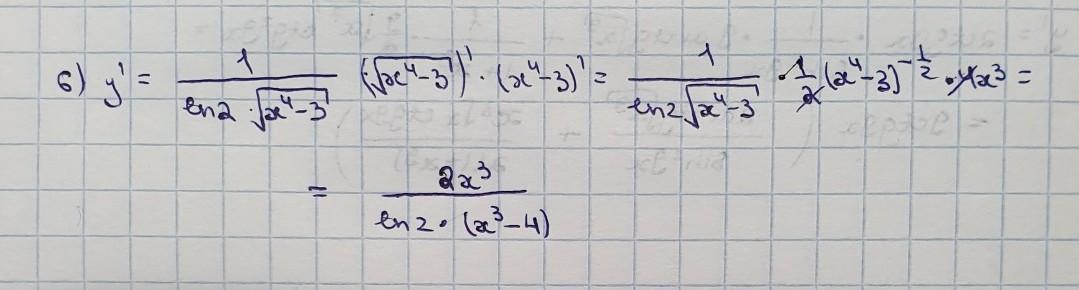 6) y' = 1/(ln2 · √(x⁴-3)) (√(x⁴-3))' · (x⁴-3)' = 1/(ln2 √(x⁴-3)) · 1/2 (x⁴-3)^(-1/2) · 4x³ =
= 2x³/(ln2 · (x³-4))